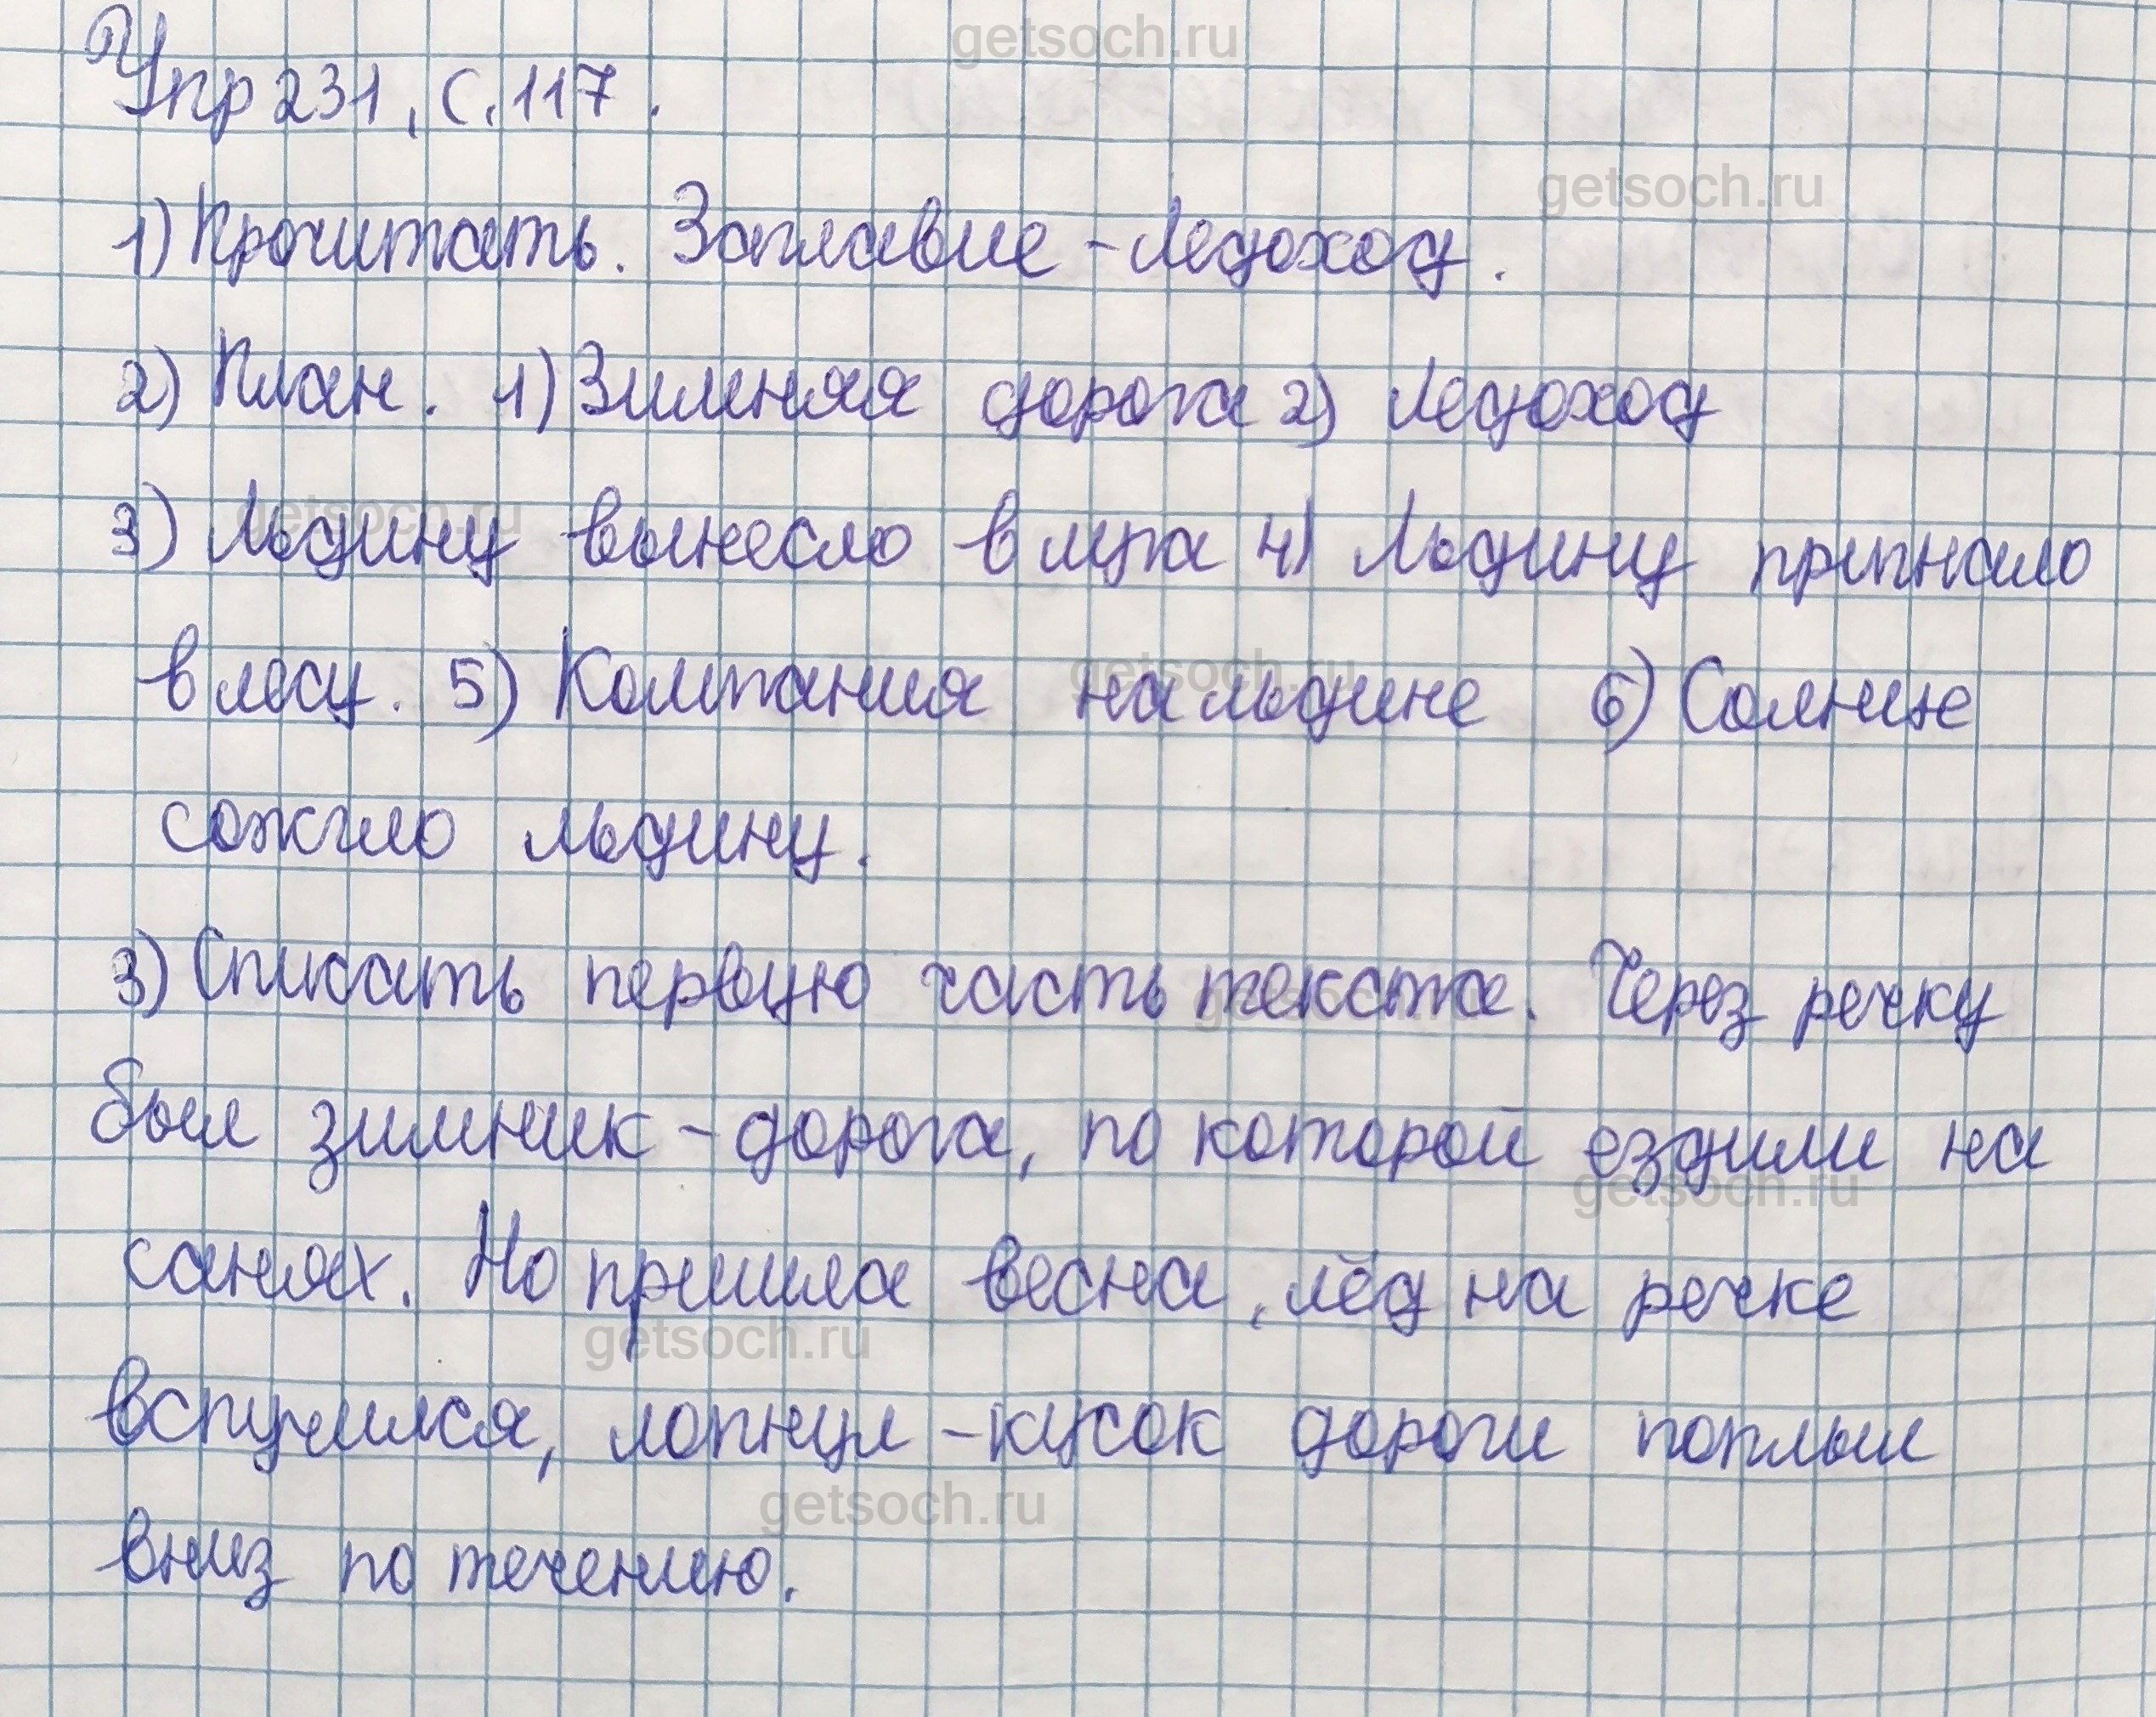 getsoch.ru
Упр 231, с. 117.
getsoch.ru
1) Прочитать. Заглавие - Ледоход.
2) План. 1) Зимняя дорога 2) Ледоход
getsoch.ru
3) Льдину вынесло в луга 4) Льдину пригнало
getsoch.ru
в лесу. 5) Компания на льдине 6) Солнце
сожгло льдину.
3) Списать первую часть текста. Через речку
getsoch.ru
был зимник - дорога, по которой ездили на
getsoch.ru
санях. Но пришла весна, лёд на речке
getsoch.ru
вспучился, лопнул - кусок дороги поплыл
getsoch.ru
вниз по течению.